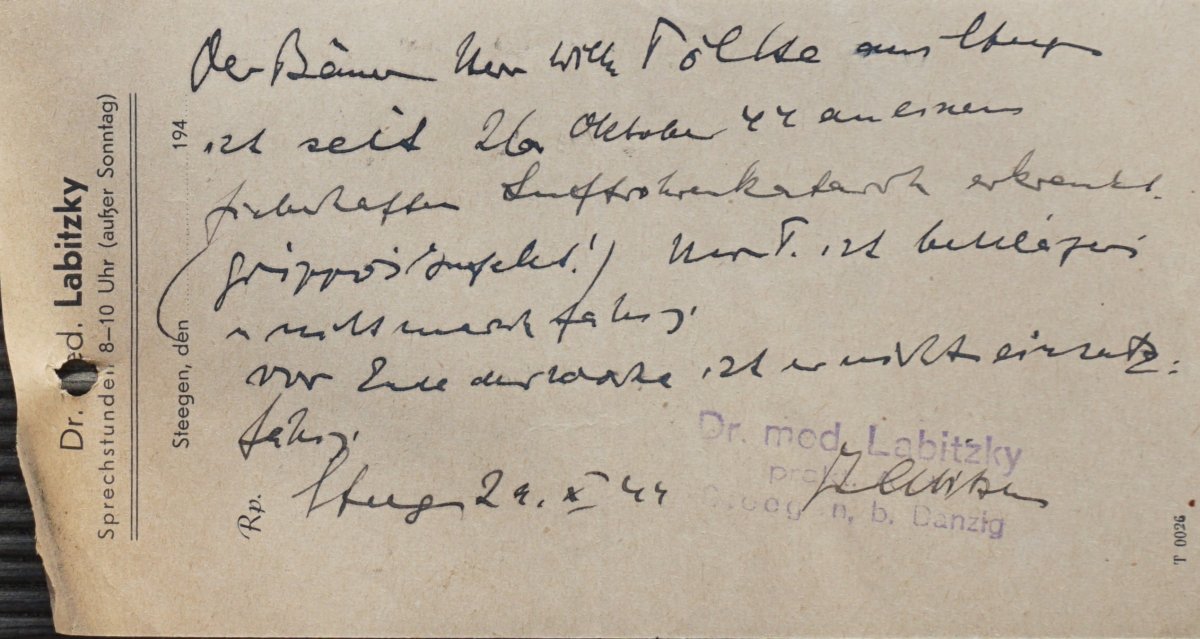 Dr. med. Labitzky
Sprechstunden 8–10 Uhr (außer Sonntag)
Steegen, den 194
Rp.
Der Herr Wilh. Töltke aus
ist seit 26. Oktober 44 an einem
fieberhaften Luftröhrenkatarrh erkrankt.
(grippös. Infekt!) Herr T. ist bettlägerig
u. nicht marschfähig.
Vor Ende der Woche ist er nicht einsatz-
fähig.
29. X 44
Dr. med. Labitzky
Steegen, b. Danzig
T 0026